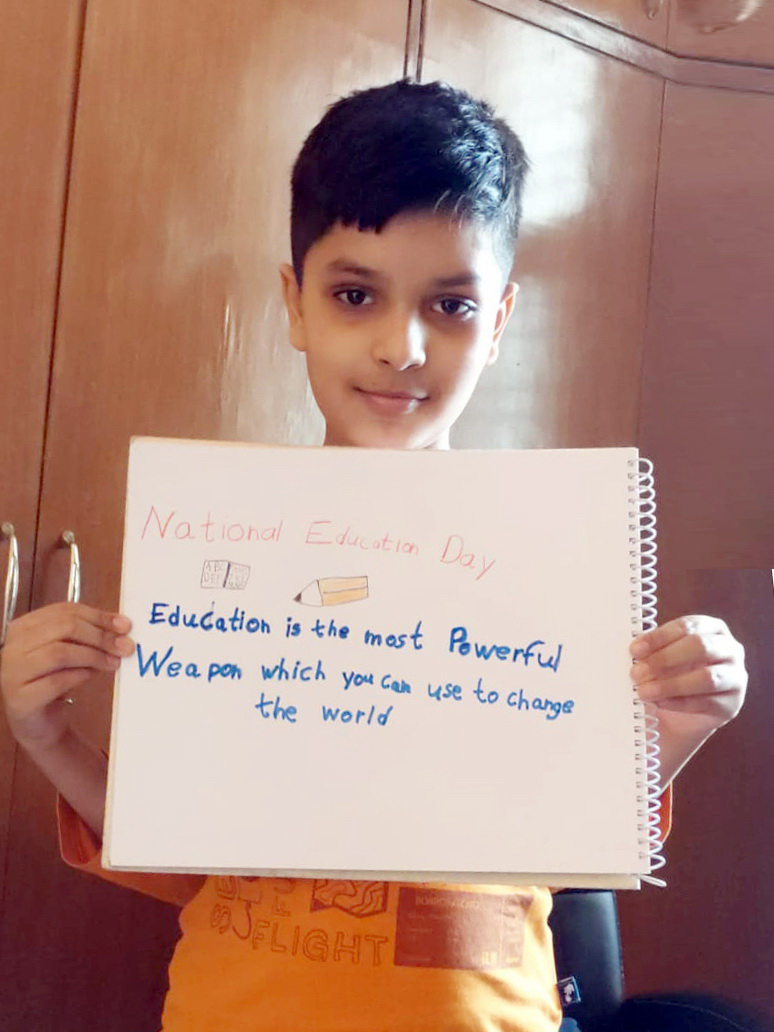 National Education Day
Education is the most Powerful
Weapon which you can use to change
the world
FLIGHT